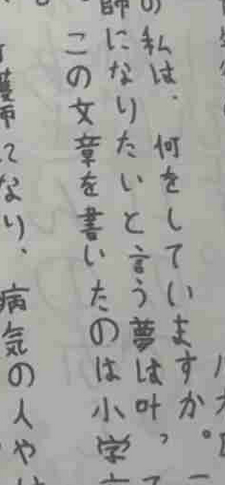 の私は、何をしていますか。
師になりたいと言う夢は叶っ
。この文章を書いたのは小学
護師になり、病気の人や